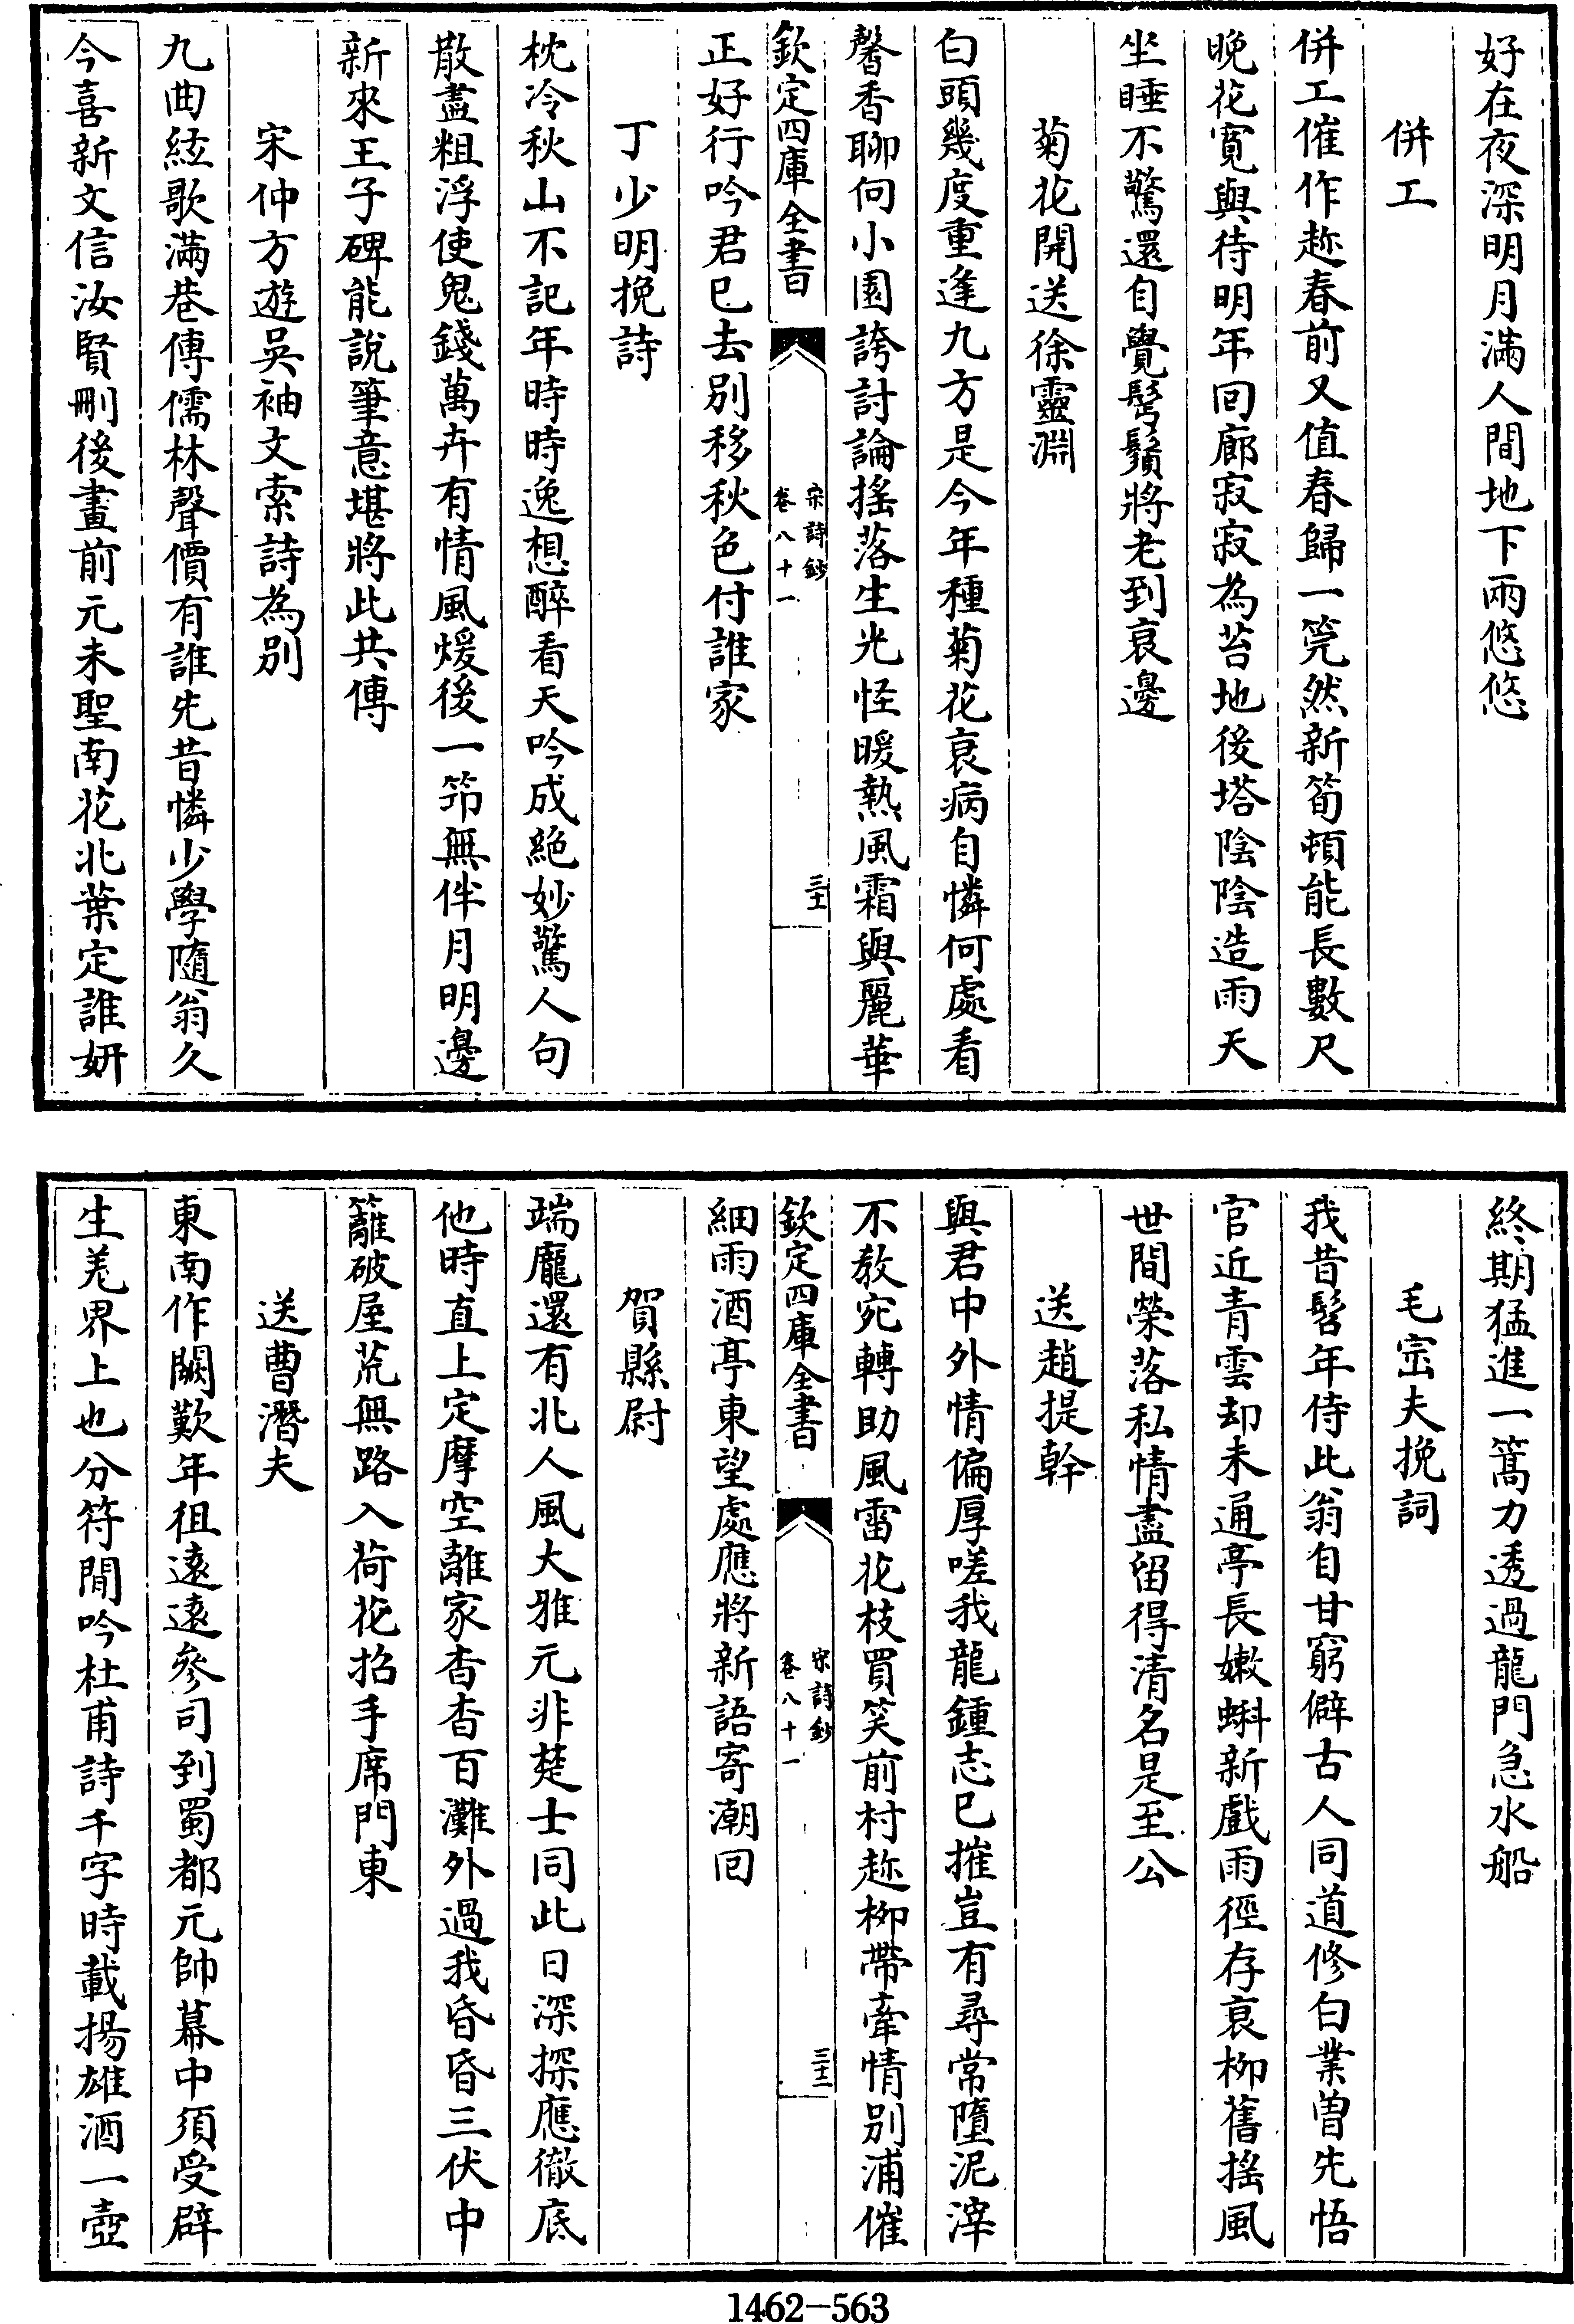 好在夜深明月滿人間地下兩悠悠
併工
併工催作趂春前又值春歸一筦然新筍頓能長數尺
晚花寬與待明年回廊寂寂為苔地後塔陰陰造雨天
坐睡不驚還自覺髩鬚將老到衰邊
菊花開送徐靈淵
白頭幾度重逢九方是今年種菊花衰病自憐何處看
馨香聊向小園誇討論搖落生光怪暖熱風霜與麗華
欽定四庫全書
宋詩鈔
卷八十一
三十
正好行吟君已去别移秋色付誰家
丁少明挽詩
枕冷秋山不記年時時逸想醉看天吟成絶妙驚人句
散盡粗浮使鬼錢萬卉有情風煖後一笻無伴月明邊
新來王子碑能說筆意堪將此共傳
宋仲方遊吳袖文索詩為别
九曲絃歌滿巷傳儒林聲價有誰先昔憐少學隨翁久
今喜新文信汝賢刪後畫前元未聖南花北葉定誰妍
終期猛進一篙力透過龍門急水船
毛宻夫挽詞
我昔髫年侍此翁自甘窮僻古人同道修白業曽先悟
官近青雲却未通亭長嫩蝌新戲雨徑存衰栁舊搖風
世間榮落私情盡留得清名是至公
送趙提幹
與君中外情偏厚嗟我龍鍾志已摧豈有尋常墮泥滓
不教宛轉助風雷花枝買笑前村趂栁帶牽情别浦催
欽定四庫全書
宋詩鈔
卷八十一
三十一
細雨酒亭東望處應將新語寄潮回
賀縣尉
端龐還有北人風大雅元非楚士同此日深探應徹底
他時直上定摩空離家杳杳百灘外過我昏昏三伏中
籬破屋荒無路入荷花招手席門東
送曹潛夫
東南作闕歎年徂逺逺參司到蜀都元帥幕中須受辟
生羌界上也分符閒吟杜甫詩千字時載揚雄酒一壺
1462—563